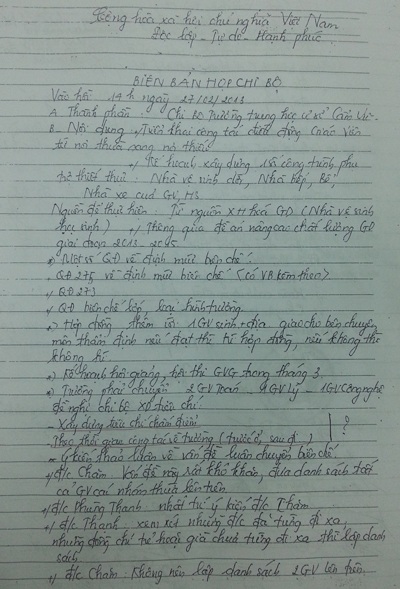 Cộng hòa xã hội chủ nghĩa Việt Nam
Độc lập - Tự do - Hạnh phúc
BIÊN BẢN HỌP CHI BỘ
Vào hồi 14h ngày 27/02/2013
A. Thành phần: Chi bộ trường trung học cơ sở
B. Nội dung: Triển khai công tác điều động
từ nơi thừa sang nơi thiếu
Kế hoạch xây dựng công trình phụ
trợ thiết thực: Nhà vệ sinh, Nhà bếp, Bể,
Nhà xe của GV, HS
Nguồn để thực hiện: Từ nguồn XH hoá GD (Nhà vệ sinh
học sinh) Thông qua đề án nâng cao chất lượng GD
giai đoạn 2013 - 2015
Một số QĐ về định mức biên chế.
QĐ 275 về định mức biên chế (có VB kèm theo)
QĐ 273
QĐ biên chế lớp loại hình trường.
Hợp đồng thẩm 1GV sinh + địa giao cho bên chuyên
môn thẩm định nếu đạt thì kí hợp đồng, nếu không thì
không kí
Kế hoạch hội giảng, hội thi GVG trong tháng 3
Trường phải chuyển 2GV Toán - 1GV Lý - 1GV Công nghệ
đề nghị chi bộ XD tiêu chí
- Xây dựng tiêu chí chấm điểm
- Theo thời gian công tác về trường (trước, sau đi) ?
ý kiến thảo luận về vấn đề luân chuyển biên chế
đ/c Chăm Vấn đề này rất khó khăn, đưa danh sách tất
cả GV các nhóm thừa lên trên
đ/c Phùng Thanh nhất trí ý kiến đ/c Chăm
đ/c Thanh: xem xét những đ/c đã từng đi xa,
những đồng chí trẻ hoặc già chưa từng đi xa thì lập danh
sách
đ/c Chăm: Không nên lập danh sách 2GV lên trên